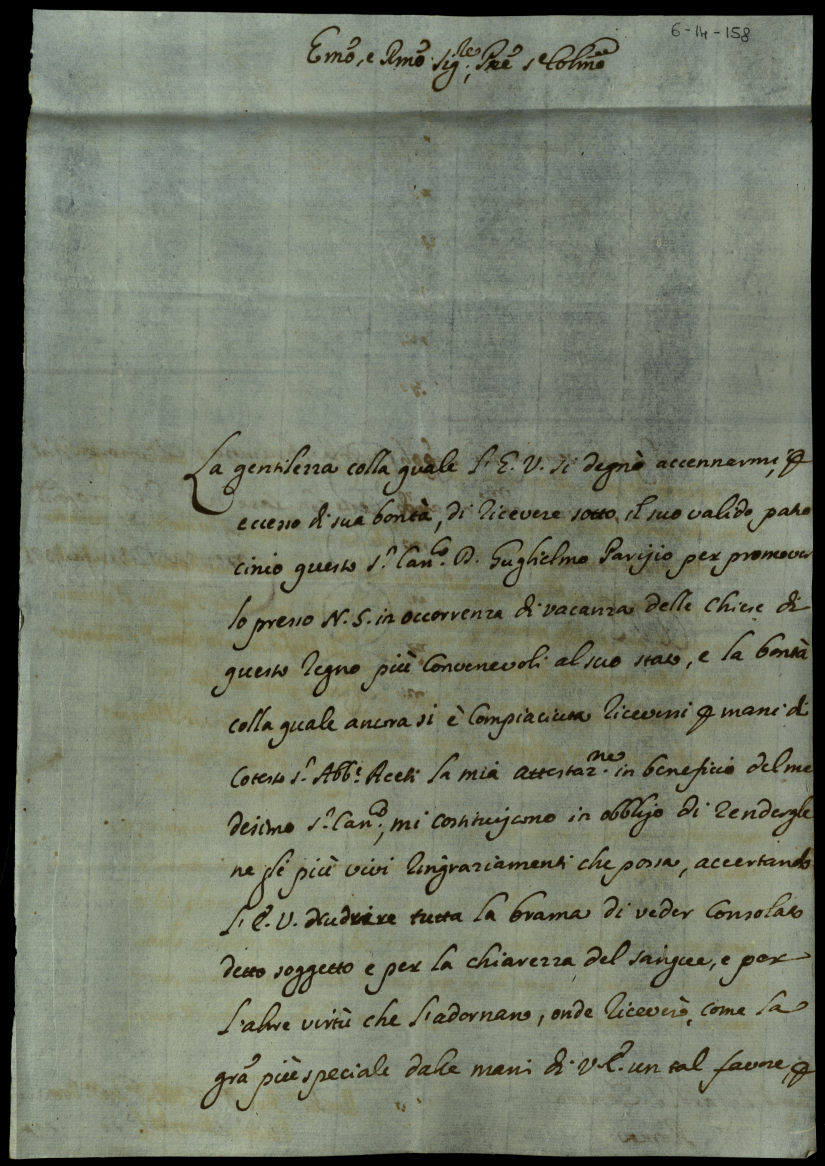 6-14-158
Emõ, e Rmõ Sig.re, Pnẽ e Colmõ
La gentilezza colla quale l'E. V. si degnò accennarmi, ꝑ
eccesso di sua bontà, di ricevere sotto il suo valido patro
cinio questo S.r Can.co D. Guglielmo Parisio per promover
lo presso N. S. in occorrenza di vacanza delle Chiese di
questo Regno più convenevoli al suo stato, e la bontà
colla quale ancora si è compiaciuta riceversi ꝑ mani di
cotesto S.r Abb.e Aceti la mia attestaz.ne in beneficio del me
desimo S.r Can.co, mi costituiscono in obbligo di rendergle
ne gli più vivi ringraziamenti che possa, accertando
l'E. V. nudrire tutta la brama di veder consolato
detto soggetto e per la chiarezza del sangue, e per
l'altre virtù che l'adornano, onde riceverò, come la
grã più speciale dalle mani di V. E. un tal favore, ꝑ